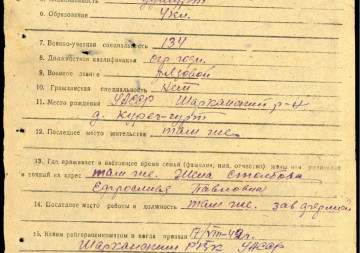 6. Образование 4 кл.
7. Военно-учетная специальность 134
8. Должностная квалификация
9. Военное звание рядовой
10. Гражданская специальность нет
11. Место рождения УАССР Шарканский р-н
д. Курег-гурт
12. Последнее место жительства там же.
13. Где проживает в настоящее время семья (фамилия, имя, отчество) жены или
и точный их адрес там же. Жена
Ефросинья Павловна
14. Последнее место работы и должность там же. зав фермой
15. Каким райвоенкоматом и когда призван 17/VIII-42г.
Шарканским РВК УАССР